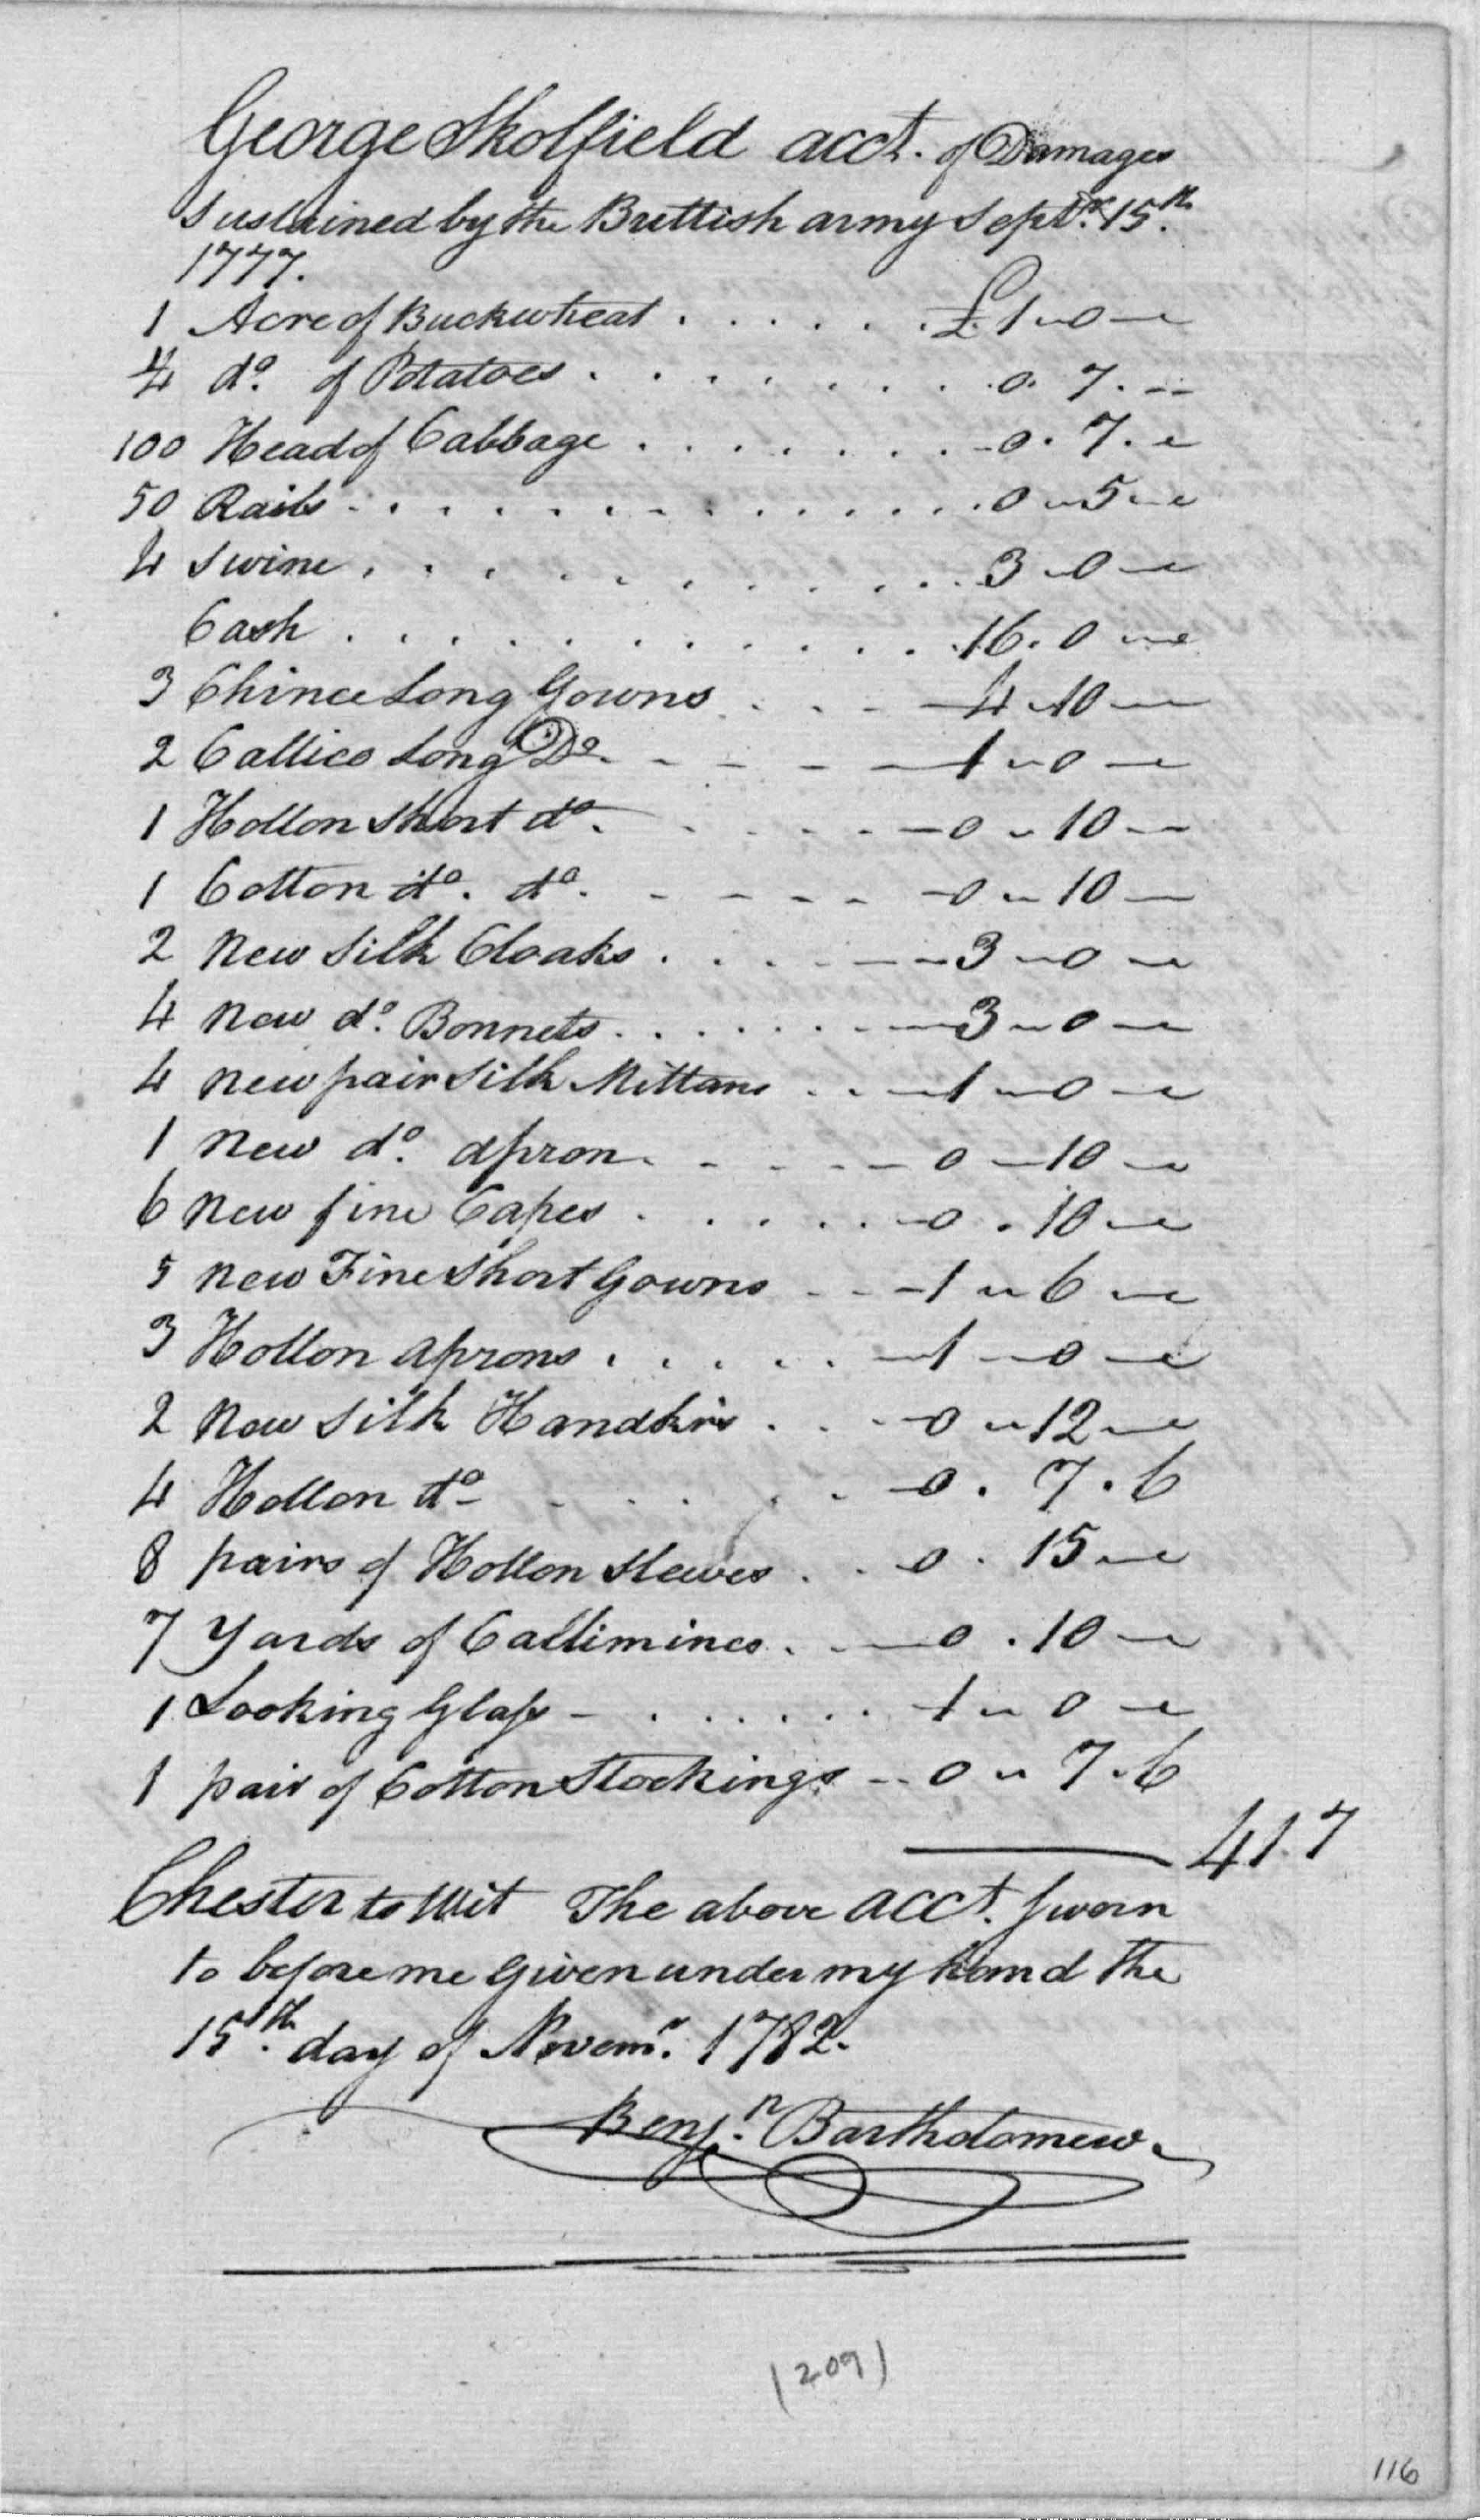 George Skolfield acct. of Damages
Sustained by the Brittish army Septr. 15th.
1777.
1 Acre of Buckwheat . . . . . . £1 " 0 "
1/4 do. of Potatoes . . . . . . . . 0. 7. "
100 Head of Cabbage . . . . . . . 0. 7. "
50 Rails . . . . . . . . . . . . 0 " 5 "
4 Swine . . . . . . . . . . . 3 " 0 "
Cash . . . . . . . . . . . 16. 0 "
3 Chince Long Gowns . . . 4 " 10 "
2 Callico Long Do. - - - - 1 " 0 "
1 Hollon Short do. . . . . . 0 " 10 "
1 Cotton do. do. - - - - - 0 " 10 "
2 New Silk Cloaks . . . . . 3 " 0 "
4 New do. Bonnets . . . . . 3 " 0 "
4 new pair Silk Mittans . . . 1 " 0 "
1 New do. apron . . . . . 0 " 10 "
6 New fine Capes . . . . . 0 . 10 "
5 New Fine Short Gowns . . . 1 " 6 "
3 Hollon aprons . . . . . 1 " 0 "
2 New Silk Handkrs . . . 0 " 12 "
4 Hollon do - . . . . . 0 . 7 . 6
8 pairs of Hollon Sleeves . . 0 . 15 "
7 Yards of Callimineo . . 0 . 10 "
1 Looking Glass - . . . . . . 1 " 0 "
1 pair of Cotton Stockings - - 0 " 7 . 6
41.7
Chester to Wit The above acct. sworn
to before me Given under my hand the
15th. day of Novemr. 1782.
Benjn. Bartholomew
(209)
116